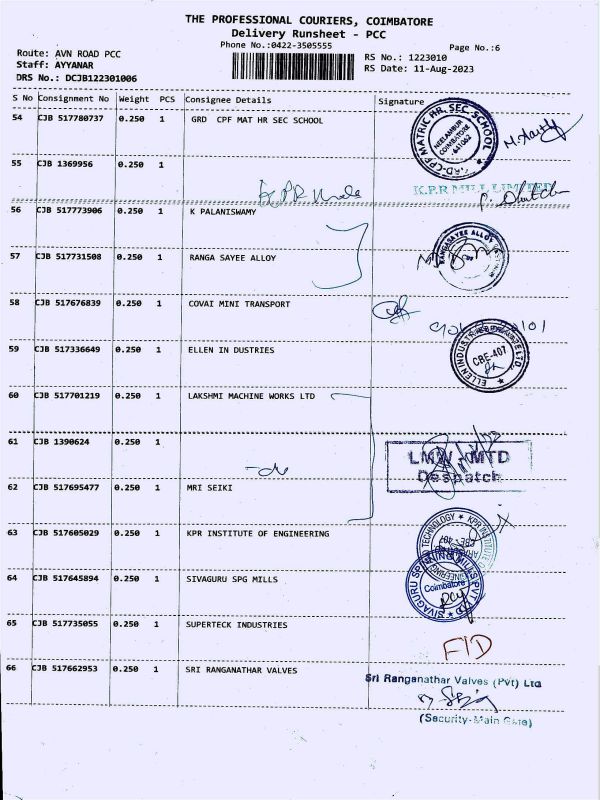 THE PROFESSIONAL COURIERS, COIMBATORE
Delivery Runsheet - PCC
Phone No.:0422-3505555
Page No.:6
Route: AVN ROAD PCC
Staff: AYYANAR
DRS No.: DCJB122301006
RS No.: 1223010
RS Date: 11-Aug-2023
S No Consignment No Weight PCS Consignee Details Signature
54 CJB 517780737 0.250 1 GRD CPF MAT HR SEC SCHOOL
CPF MATRIC HR. SEC. SCHOOL
NEELAMBUR
COIMBATORE
641062
55 CJB 1369956 0.250 1
K.P.R MILL LIMITED
56 CJB 517773906 0.250 1 K PALANISWAMY
57 CJB 517731508 0.250 1 RANGA SAYEE ALLOY
RANGASAYEE ALLOY
58 CJB 517676839 0.250 1 COVAI MINI TRANSPORT
59 CJB 517336649 0.250 1 ELLEN IN DUSTRIES
CBE-407
60 CJB 517701219 0.250 1 LAKSHMI MACHINE WORKS LTD
61 CJB 1390624 0.250 1
-do
LMW - MTD
Despatch
62 CJB 517695477 0.250 1 MRI SEIKI
63 CJB 517605029 0.250 1 KPR INSTITUTE OF ENGINEERING
TECHNOLOGY * KPR INSTITUTE OF
64 CJB 517645894 0.250 1 SIVAGURU SPG MILLS
SIVAGURU SPINNING MILLS PVT LTD
Coimbatore
65 CJB 517735055 0.250 1 SUPERTECK INDUSTRIES
FID
66 CJB 517662953 0.250 1 SRI RANGANATHAR VALVES
Sri Ranganathar Valves (Pvt) Ltd
(Security-Main Gate)